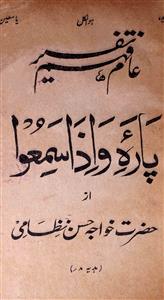 ہوالکل
عام فہم تفسیر
پارۂ واذا سمعوا
از
حضرت خواجہ حسن نظامی